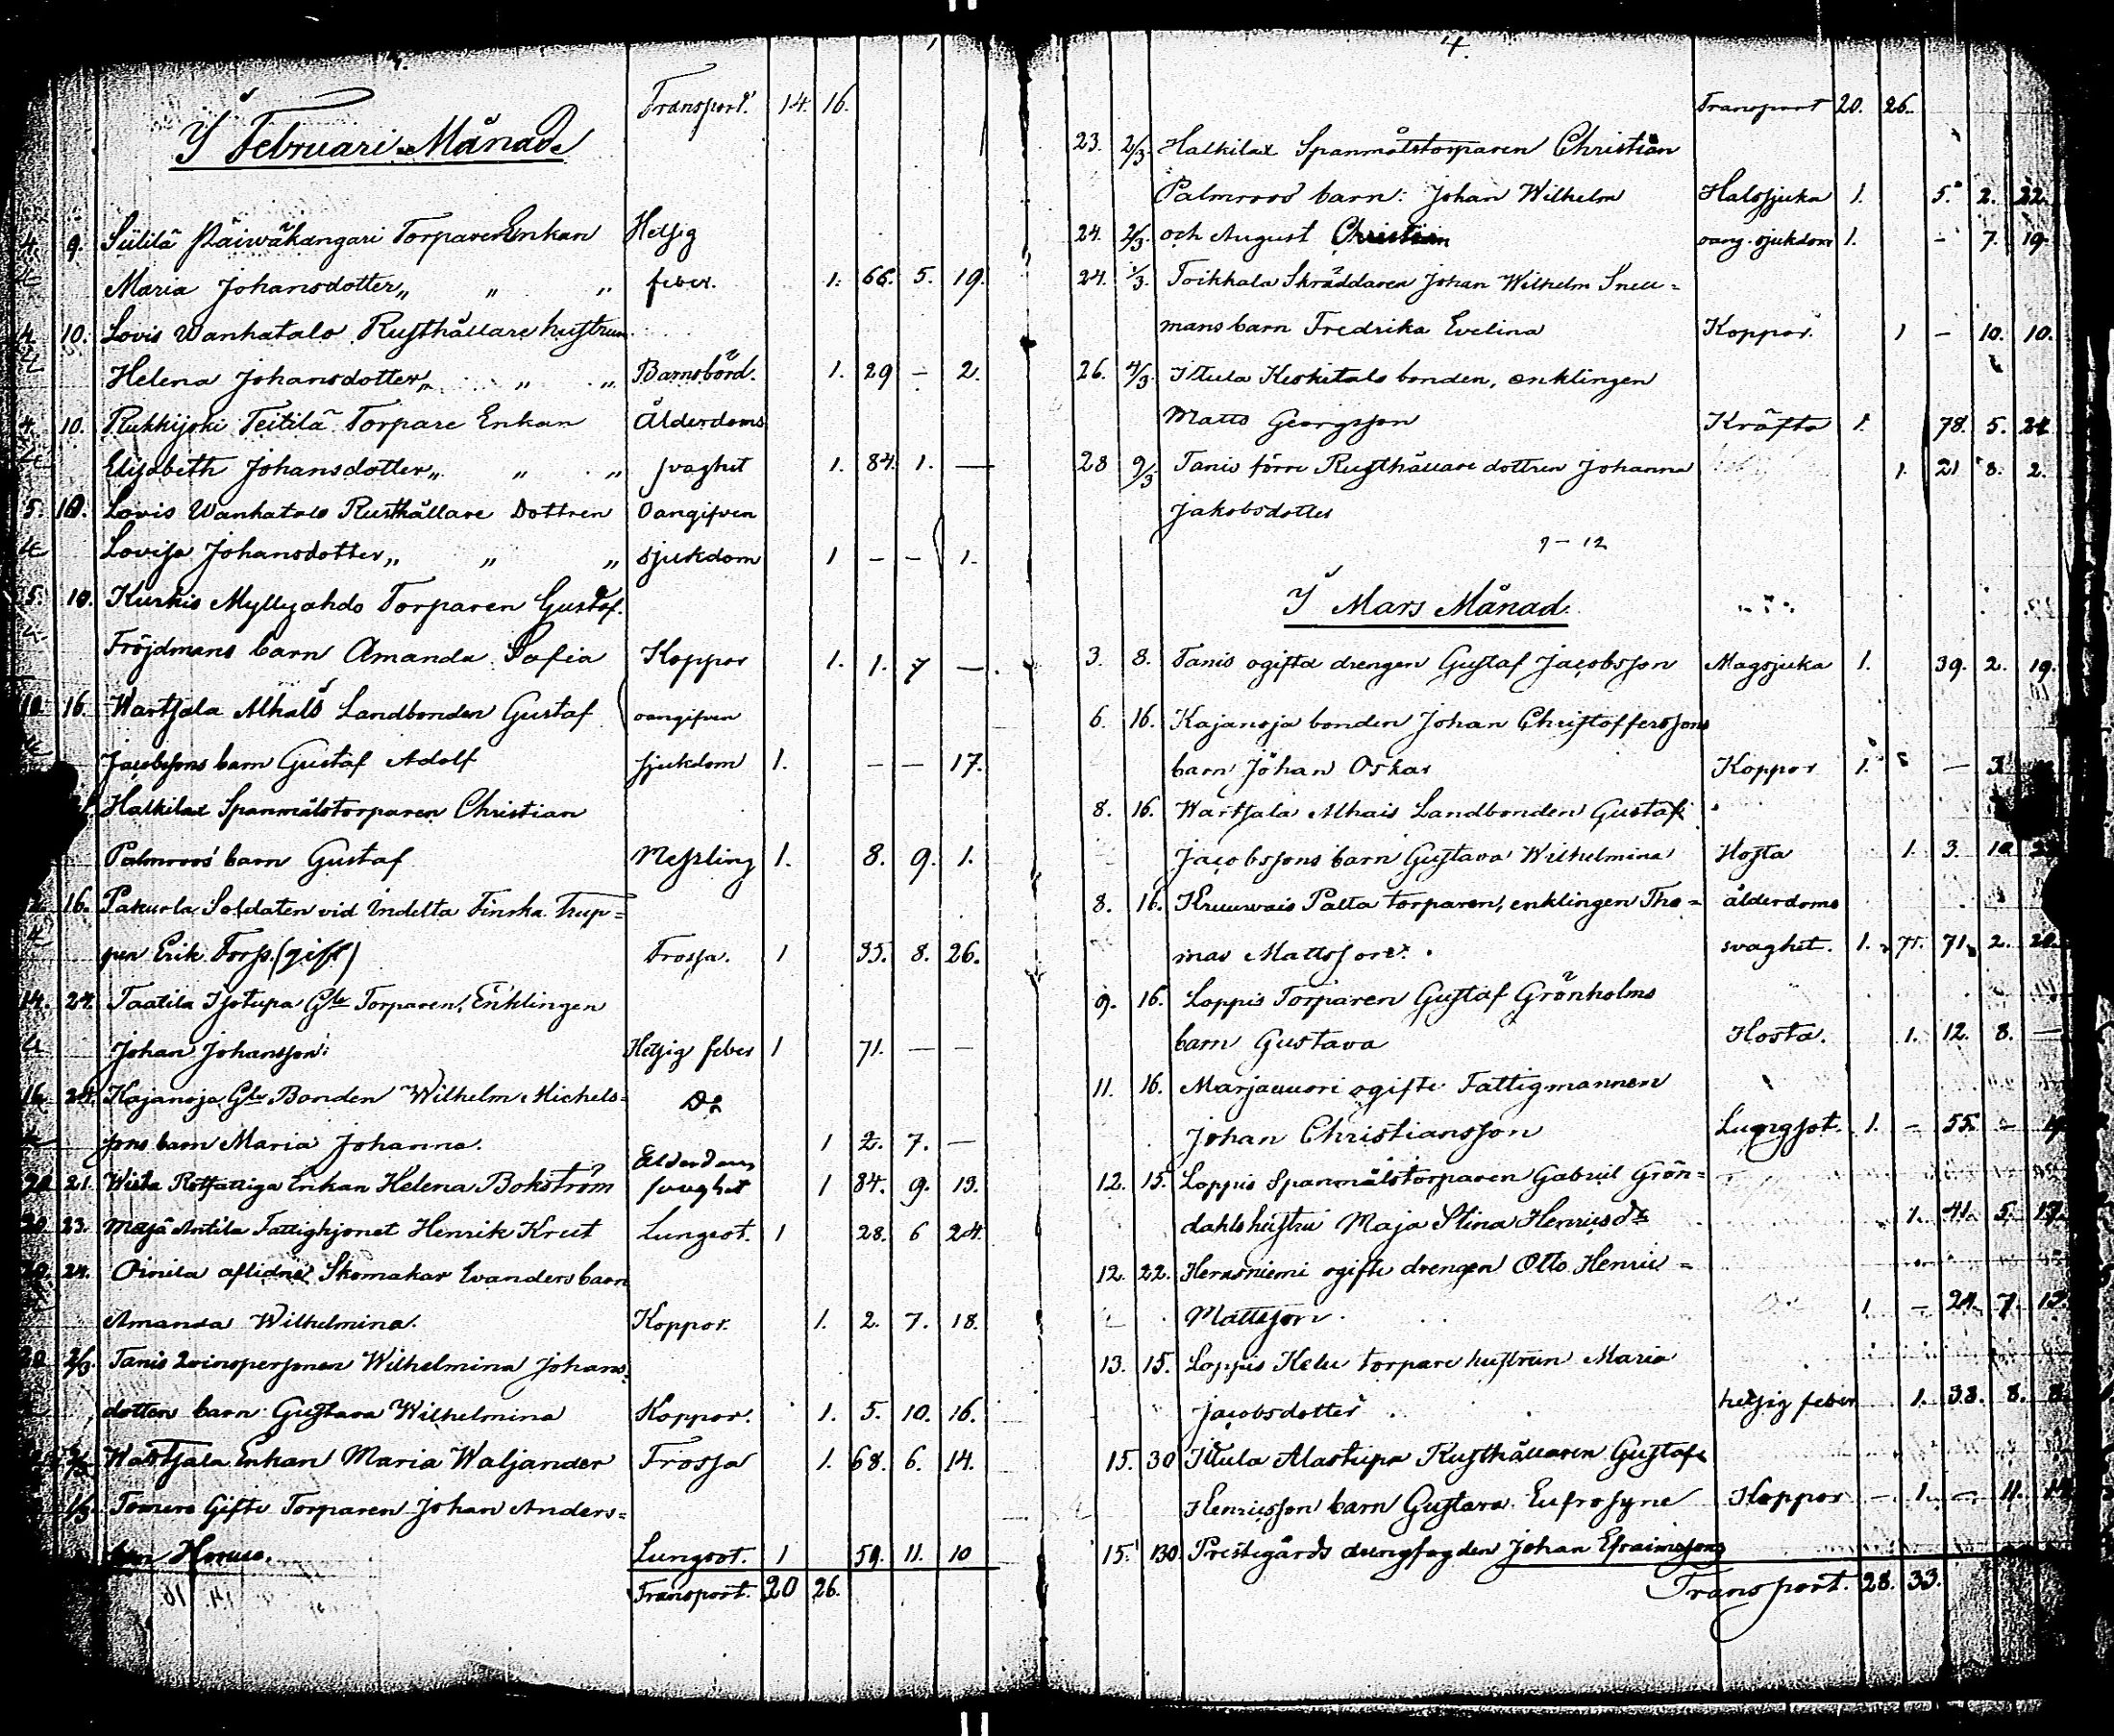 Transport. 14. 16.
I Februari Månad
4. 9. Siililä Päiwäkangari Torpare Enkan Hetsig
Maria Johansdotter „ „ „ feber. 1. 66. 5. 19.
4 10. Lovis Wanhatalo Rusthållare hustrun
Helena Johansdotter „ „ „ Barnsbörd. 1. 29 – 2.
4 10. Rukkijoki Teitilä Torpare Enkan Ålderdoms
Elisabeth Johansdotter „ „ „ svaghet 1. 84. 1. —
5. 10. Lovis Wanhatalo Rusthållare Dottren Oangifven
Lovisa Johansdotter „ „ „ sjukdom 1 – – 1.
5. 10. Kurkis Myllyahdo Torparen Gustaf
Fröjdmans barn Amanda Sofia Koppor 1. 1. 7 —
10. 16. Wartsala Alhais Landbonden Gustaf oangifven
Jacobssons barn Gustaf Adolf sjukdom 1. – – 17.
Halkilax Spanmålstorparen Christian
Palmroos barn Gustaf Messling 1. 8. 9. 1.
16. Pakurla Soldaten vid Indelta Finska Trup=
pen Erik Forss. (gift) Trossa. 1 35. 8. 26.
14. 24. Taatila Isotupa Gle Torparen, Enklingen
Johan Johansson: Hetsig feber 1 71. — —
16 24. Kajanoja Gle Bonden Wilhelm Michels=
sons barn Maria Johanna. Do 1 2. 7. —
Ålderdoms
20 21. Wista Rotfattiga Enkan Helena Bokström svaghet 1 84. 9. 13.
20 23. Maijä Antila Fattighjonet Henrik Kreet Lungsot. 1 28. 6 24.
20. 24. Oinila aflidne Skomakar Evanders barn
Amanda Wilhelmina. Koppor. 1. 2. 7. 18.
20 2/3. Tanis Qvinspersonen Wilhelmina Johans=
dotters barn Gustava Wilhelmina Koppor. 1. 5. 10. 16.
2/3 Wartsala Enkan Maria Waljander Trossa 1. 68. 6. 14.
1/3. Tomero Gifte Torparen Johan Anders=
Lungsot. 1 59. 11. 10
Transport. 20 26.
4.
Transport 20. 26.
23. 2/3. Halkilax Spanmålstorparen Christian
Palmroos barn: Johan Wilhelm Halssjuka 1. 5. 2. 22.
24. 2/3. och August Christian oang. sjukdom 1. – 7. 19.
24. 1/3. Toikkala Skräddaren Johan Wilhelm Snell=
mans barn Fredrika Evelina Koppor. 1 – 10. 10.
26. 4/3. Ittula Keskitalo bonden, enklingen
Matts Georgsson Kräfta 1. 78. 5. 24
28 9/3 Tanis förre Rusthållare dottren Johanna 1. 21 8. 2.
Jakobsdotter
9 – 12
I Mars Månad.
3. 8. Tanis ogifta drengen Gustaf Jacobsson Magsjuka 1. 39. 2. 19.
6. 16. Kajanoja bonden Johan Christofferssons
barn Johan Oskar Koppor 1. — 3.
8. 16. Wartsala Alhais Landbonden Gustaf
Jacobssons barn Gustava Wilhelmina Hosta 1. 3. 10
8. 16. Kruuwais Palta torparen, enklingen Tho= ålderdoms
mas Mattsson. svaghet. 1. 71. 71. 2. 20.
9. 16. Loppis Torparen Gustaf Grönholms
barn Gustava Hosta. 1. 12. 8. —
11. 16. Marjavuori ogifte Fattigmannen
Johan Christiansson Lungsot. 1. – 55. –
12. 15. Loppis Spanmålstorparen Gabriel Grön=
dahls hustru Maja Stina Henricsdr 1. 41. 5. 17.
12. 22. Herasniemi ogifte drengen Otto Henric=
Mattsson. 1. – 24. 7. 12.
13. 15. Loppis Kelu torpare hustrun Maria
Jacobsdotter hetsig feber 1. 38. 8. 8.
15. 30 Ittula Alastupa Rusthållaren Gustaf
Henricsson barn Gustava Eufrosyne Koppor – 1. – 11.
15. 30. Prestegårds drengfogden Johan Efraimssons
Transport. 28. 33.